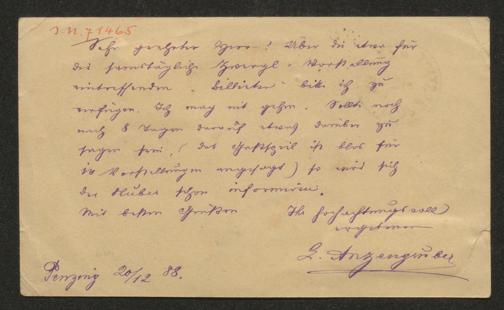 J.N. 71465
Sehr geehrter Herr! Über die etwa für
die samstägliche Zwergl-Vorstellung
eintreffenden Billeten bitte ich zu
verfügen. Ich mag nit gehn. Sollte noch
nach 8 Tagen darauf etwas darüber zu
sagen sein, (das Gastspiel ist blos für
14 Vorstellungen angesagt) so wird sich
der Kluber schon informiren.
Mit besten Grüßen Ihr hochachtungsvoll
ergebener
L. Anzengruber
Penzing 20/12 88.